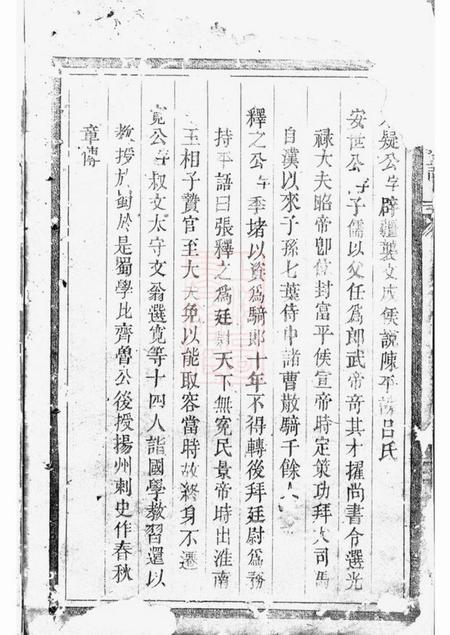 疑公字辟疆襲文成侯說陳平 呂氏
安世公字子儒以父任為郎武帝奇其才擢尚書令選光
祿大夫昭帝卽位封富平侯宣帝時定策功拜大司馬
自漢以來子孫七葉侍中諸曹散騎千餘人
釋之公字季堵以資為騎郎十年不得轉後拜廷尉為務
持平語曰張釋之為廷尉天下無冤民景帝時出淮南
王相子贊官至大夫免以能取容當時故終身不遷
寬公字叔文太守文翁選寛等十四人詣國學教習還以
教授於蜀於是蜀學比齊魯公後授揚州刺史作春秋
章傳